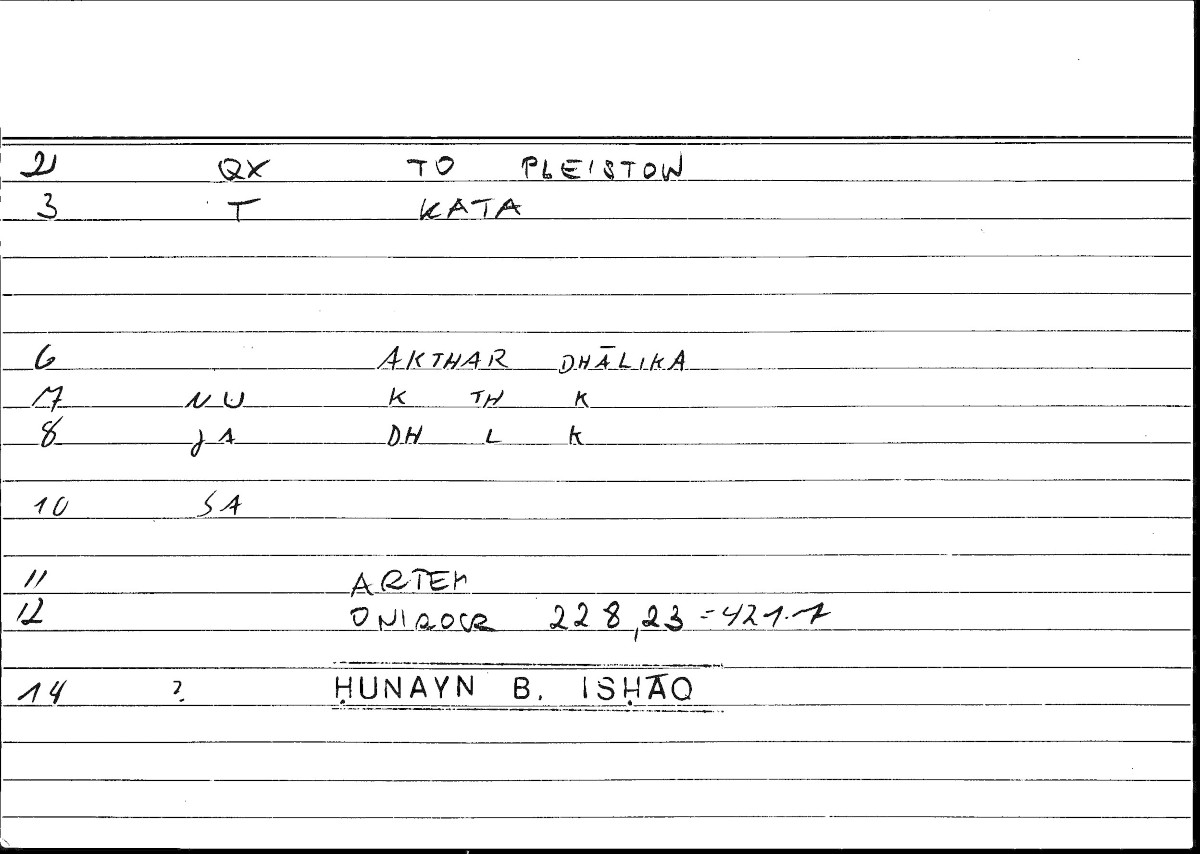 2 QX TO PLEISTOW
3 T KATA
6 AKTHAR DHĀLIKA
7 NU K TH K
8 JA DH L K
10 SA
11 ARTEM
12 ONIROCR 228,23=421.7
14 ? ḤUNAYN B. ISḤĀQ